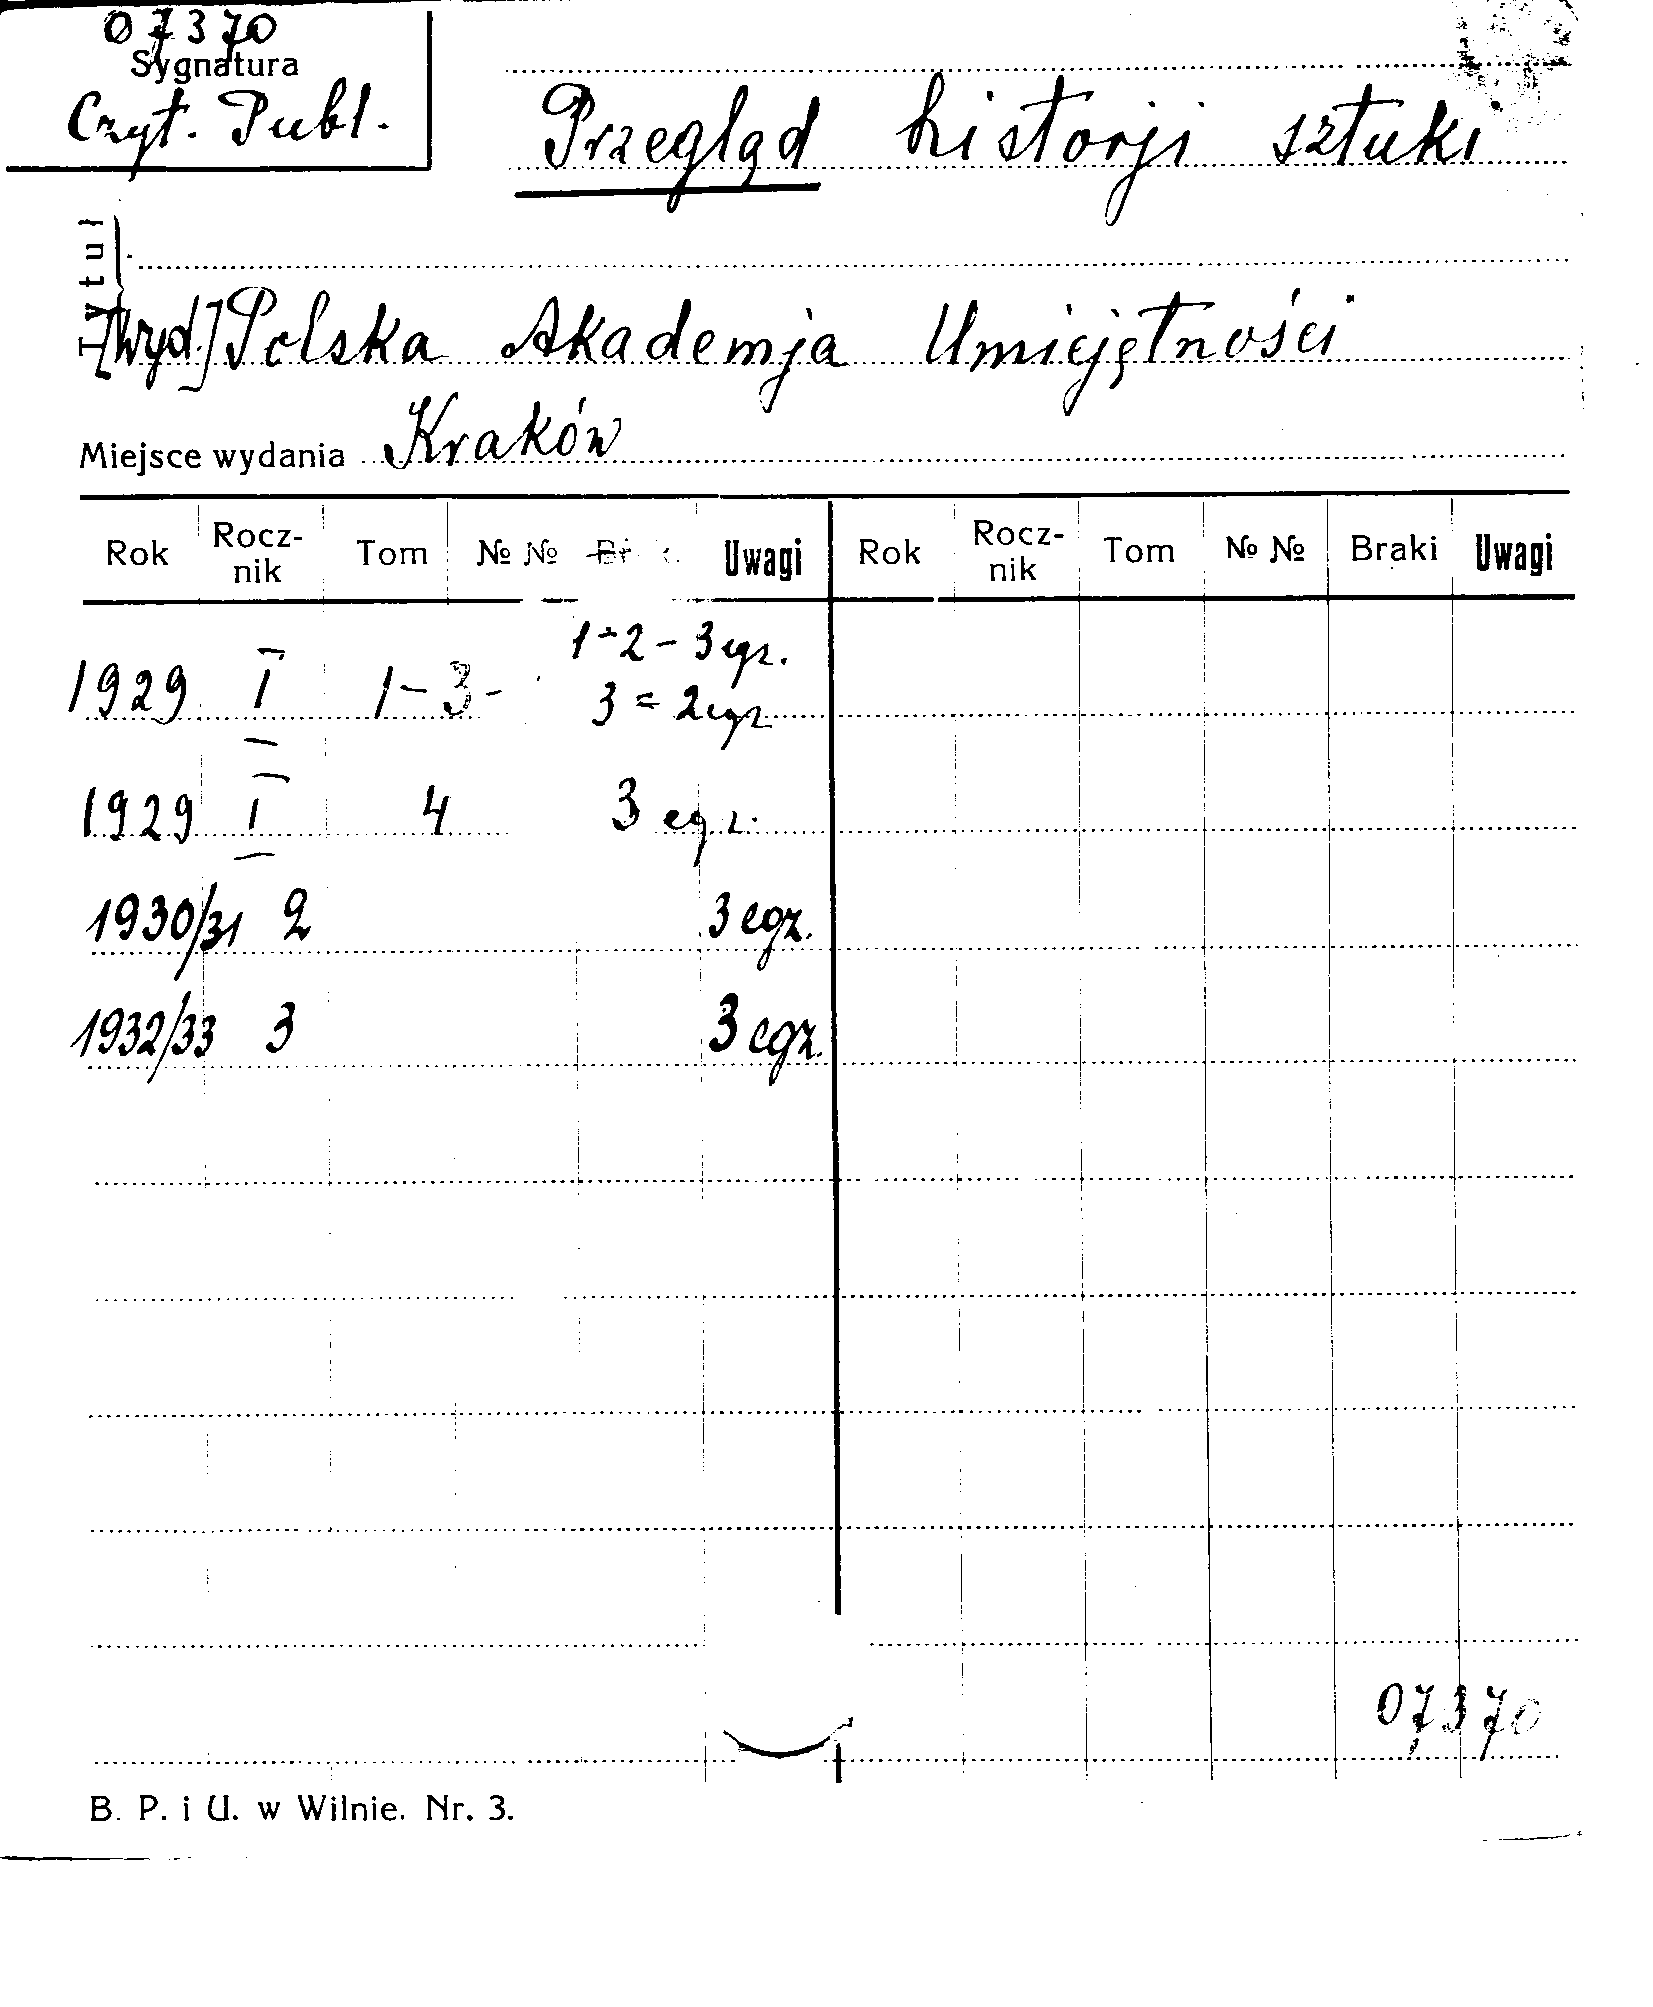 07370
Sygnatura
Czyt. Publ.
Przegląd historji sztuki
Tytuł
[Wyd.] Polska Akademja Umiejętności
Miejsce wydania Kraków
Rok Rocz-nik Tom №№ Uwagi Rok Rocz-nik Tom №№ Braki Uwagi
1-2 - 3 egz.
1929 I 1-3- 3 = 2 egz
1929 I 4 3 egz.
1930/31 2 3 egz.
1932/33 3 3 egz.
07370
B. P. i U. w Wilnie. Nr. 3.